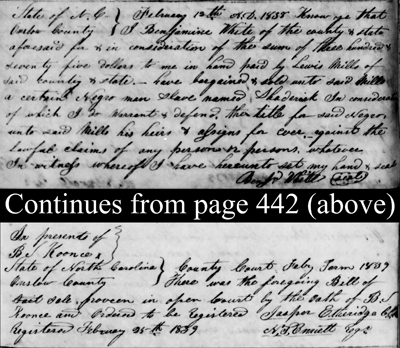 State of N. C } February 13th A.D. 1838 Know ye that
Onslow County } I Benjamine White of the county & state
aforesaid for & in consideration of the sum of three hundred &
seventy five dollars to me in hand paid by Lewis Mills of
said County & state - have bargained & sold unto said Mills
a certain Negro man slave named Shaderick In consideration
of which I do warrant & defend the title for said Negro
unto said Mills his heirs & assigns for ever against the
lawful claims of any person or persons whatever
In witness whereof I have hereunto set my hand & seal
Benj White (seal)
Continues from page 442 (above)
In presents of }
B. S. Koonce }
State of North Carolina } County Court Feby Term 1839
Onslow County } There was the foregoing Bill of
sale proveen in open Court by the oath of B. S.
Koonce and Ordered to be Registered Jasper Etheridge Clk
Registered February 25th 1839